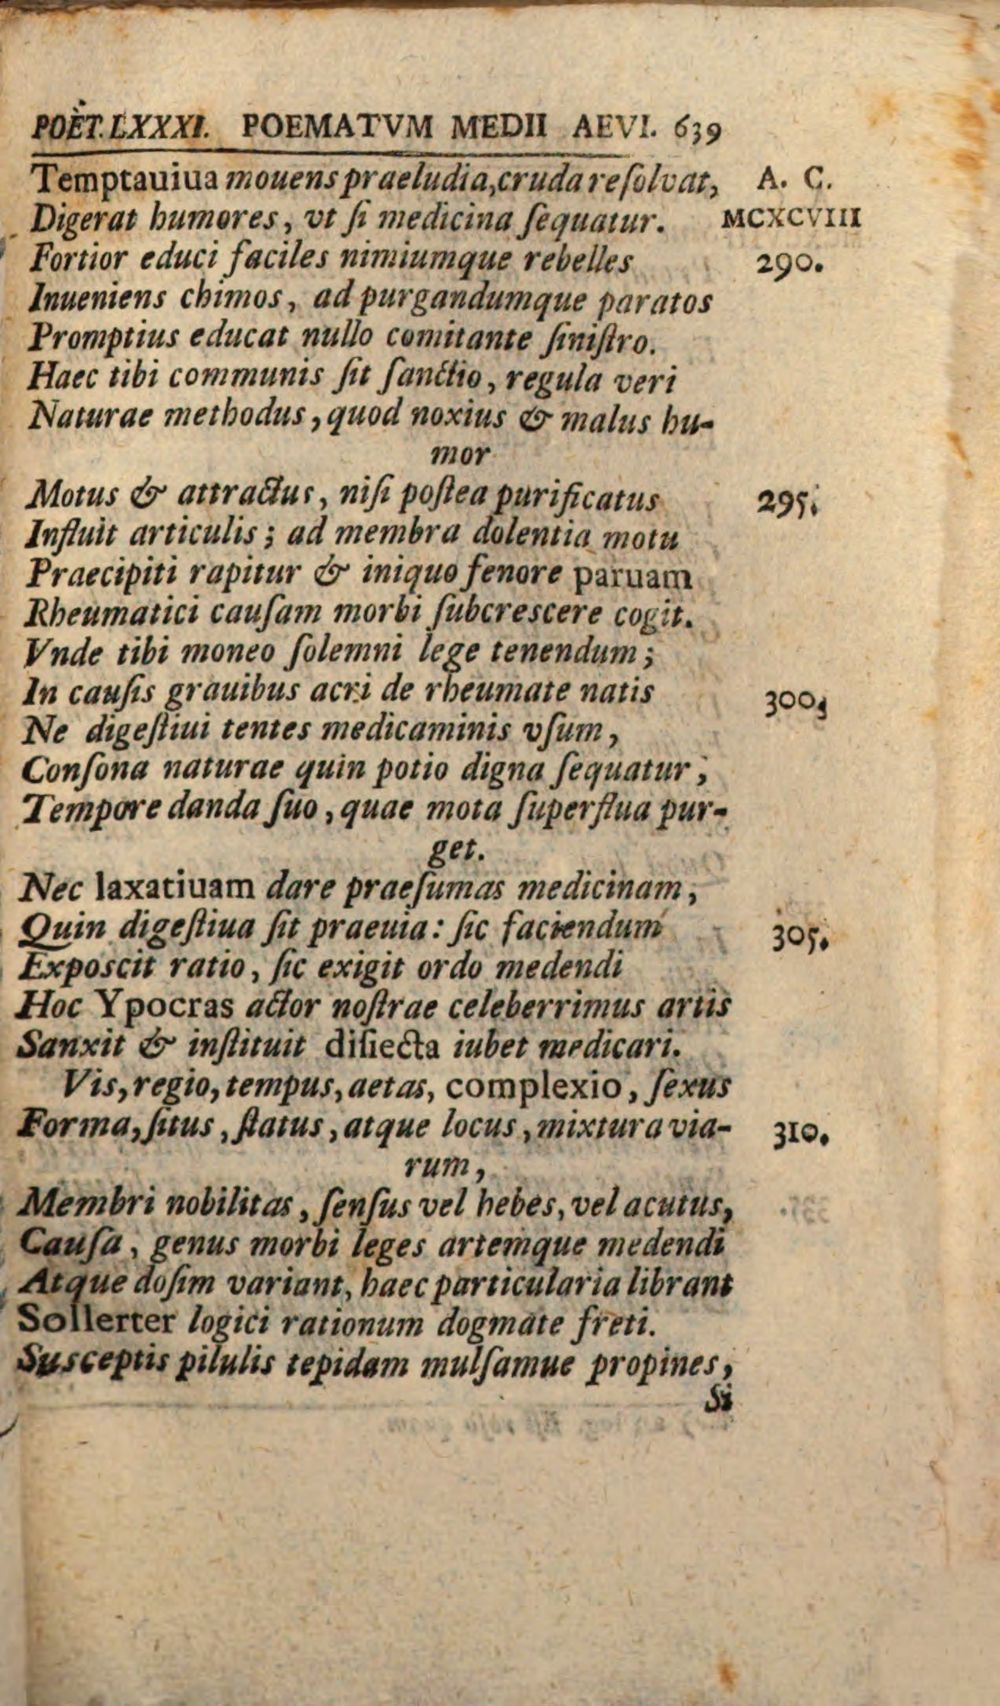 POËT. LXXXI. POEMATVM MEDII AEVI. 639
Temptauiua mouens praeludia, cruda reſolvat, A. C.
Digerat humores, vt ſi medicina ſequatur. MCXCVIII
Fortior educi faciles nimiumque rebelles 290.
Inueniens chimos, ad purgandumque paratos
Promptius educat nullo comitante ſiniſtro.
Haec tibi communis ſit ſanctio, regula veri
Naturae methodus, quod noxius & malus hu-
mor
Motus & attractus, niſi poſtea purificatus 295.
Influit articulis; ad membra dolentia motu
Praecipiti rapitur & iniquo fenore paruam
Rheumatici cauſam morbi ſubcrescere cogit.
Vnde tibi moneo ſolemni lege tenendum;
In cauſis grauibus acri de rheumate natis 300.
Ne digeſtiui tentes medicaminis vſum,
Conſona naturae quin potio digna ſequatur;
Tempore danda ſuo, quae mota ſuperflua pur-
get.
Nec laxatiuam dare praeſumas medicinam,
Quin digeſtiua ſit praeuia: ſic faciendum 305.
Exposcit ratio, ſic exigit ordo medendi
Hoc Ypocras actor noſtrae celeberrimus artis
Sanxit & inſtituit diſiecta iubet medicari.
Vis, regio, tempus, aetas, complexio, ſexus
Forma, ſitus, ſtatus, atque locus, mixtura via- 310.
rum,
Membri nobilitas, ſenſus vel hebes, vel acutus,
Cauſa, genus morbi leges artemque medendi
Atque doſim variant, haec particularia librant
Sollerter logici rationum dogmate freti.
Susceptis pilulis tepidam mulſamue propines,
Si